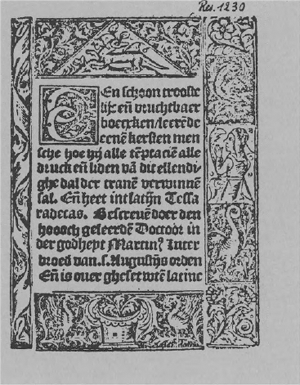 Res. 1230
EEn schoon trooste
lijc eñ vruchtbaer
boecxken / leerēde
eenē kersten men
sche hoe hij alle tēptaciē alle
druck eñ liden vā dit ellendi/
ghe dal der tranē verwinnē
sal. Eñ heet int latijn Tessa
radecas. Bescreuē doer den
hoooch geleerdē Doctoor in
der godheyt Martinꝰ luter
broed van .s. Augustijs orden
Eñ is ouer gheset wtē latine